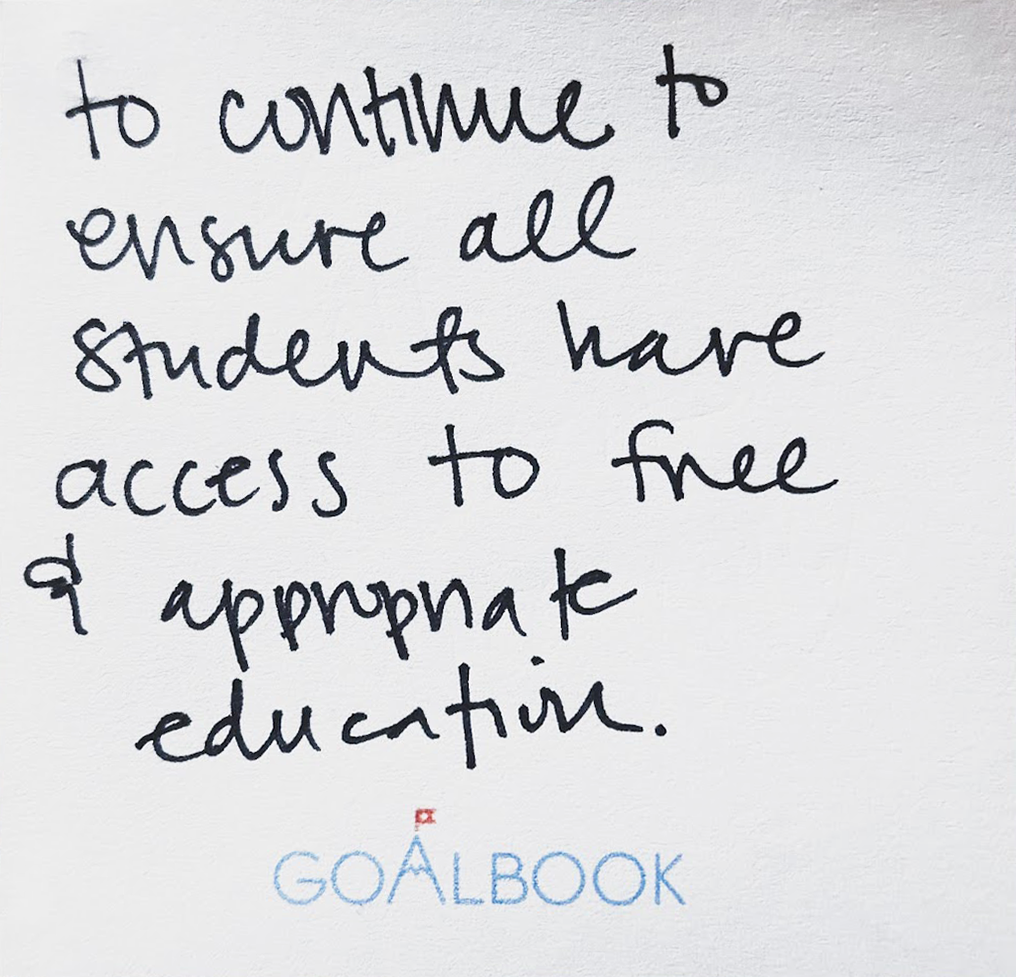 to continue to
ensure all
students have
access to free
& appropriate
education.
GOALBOOK